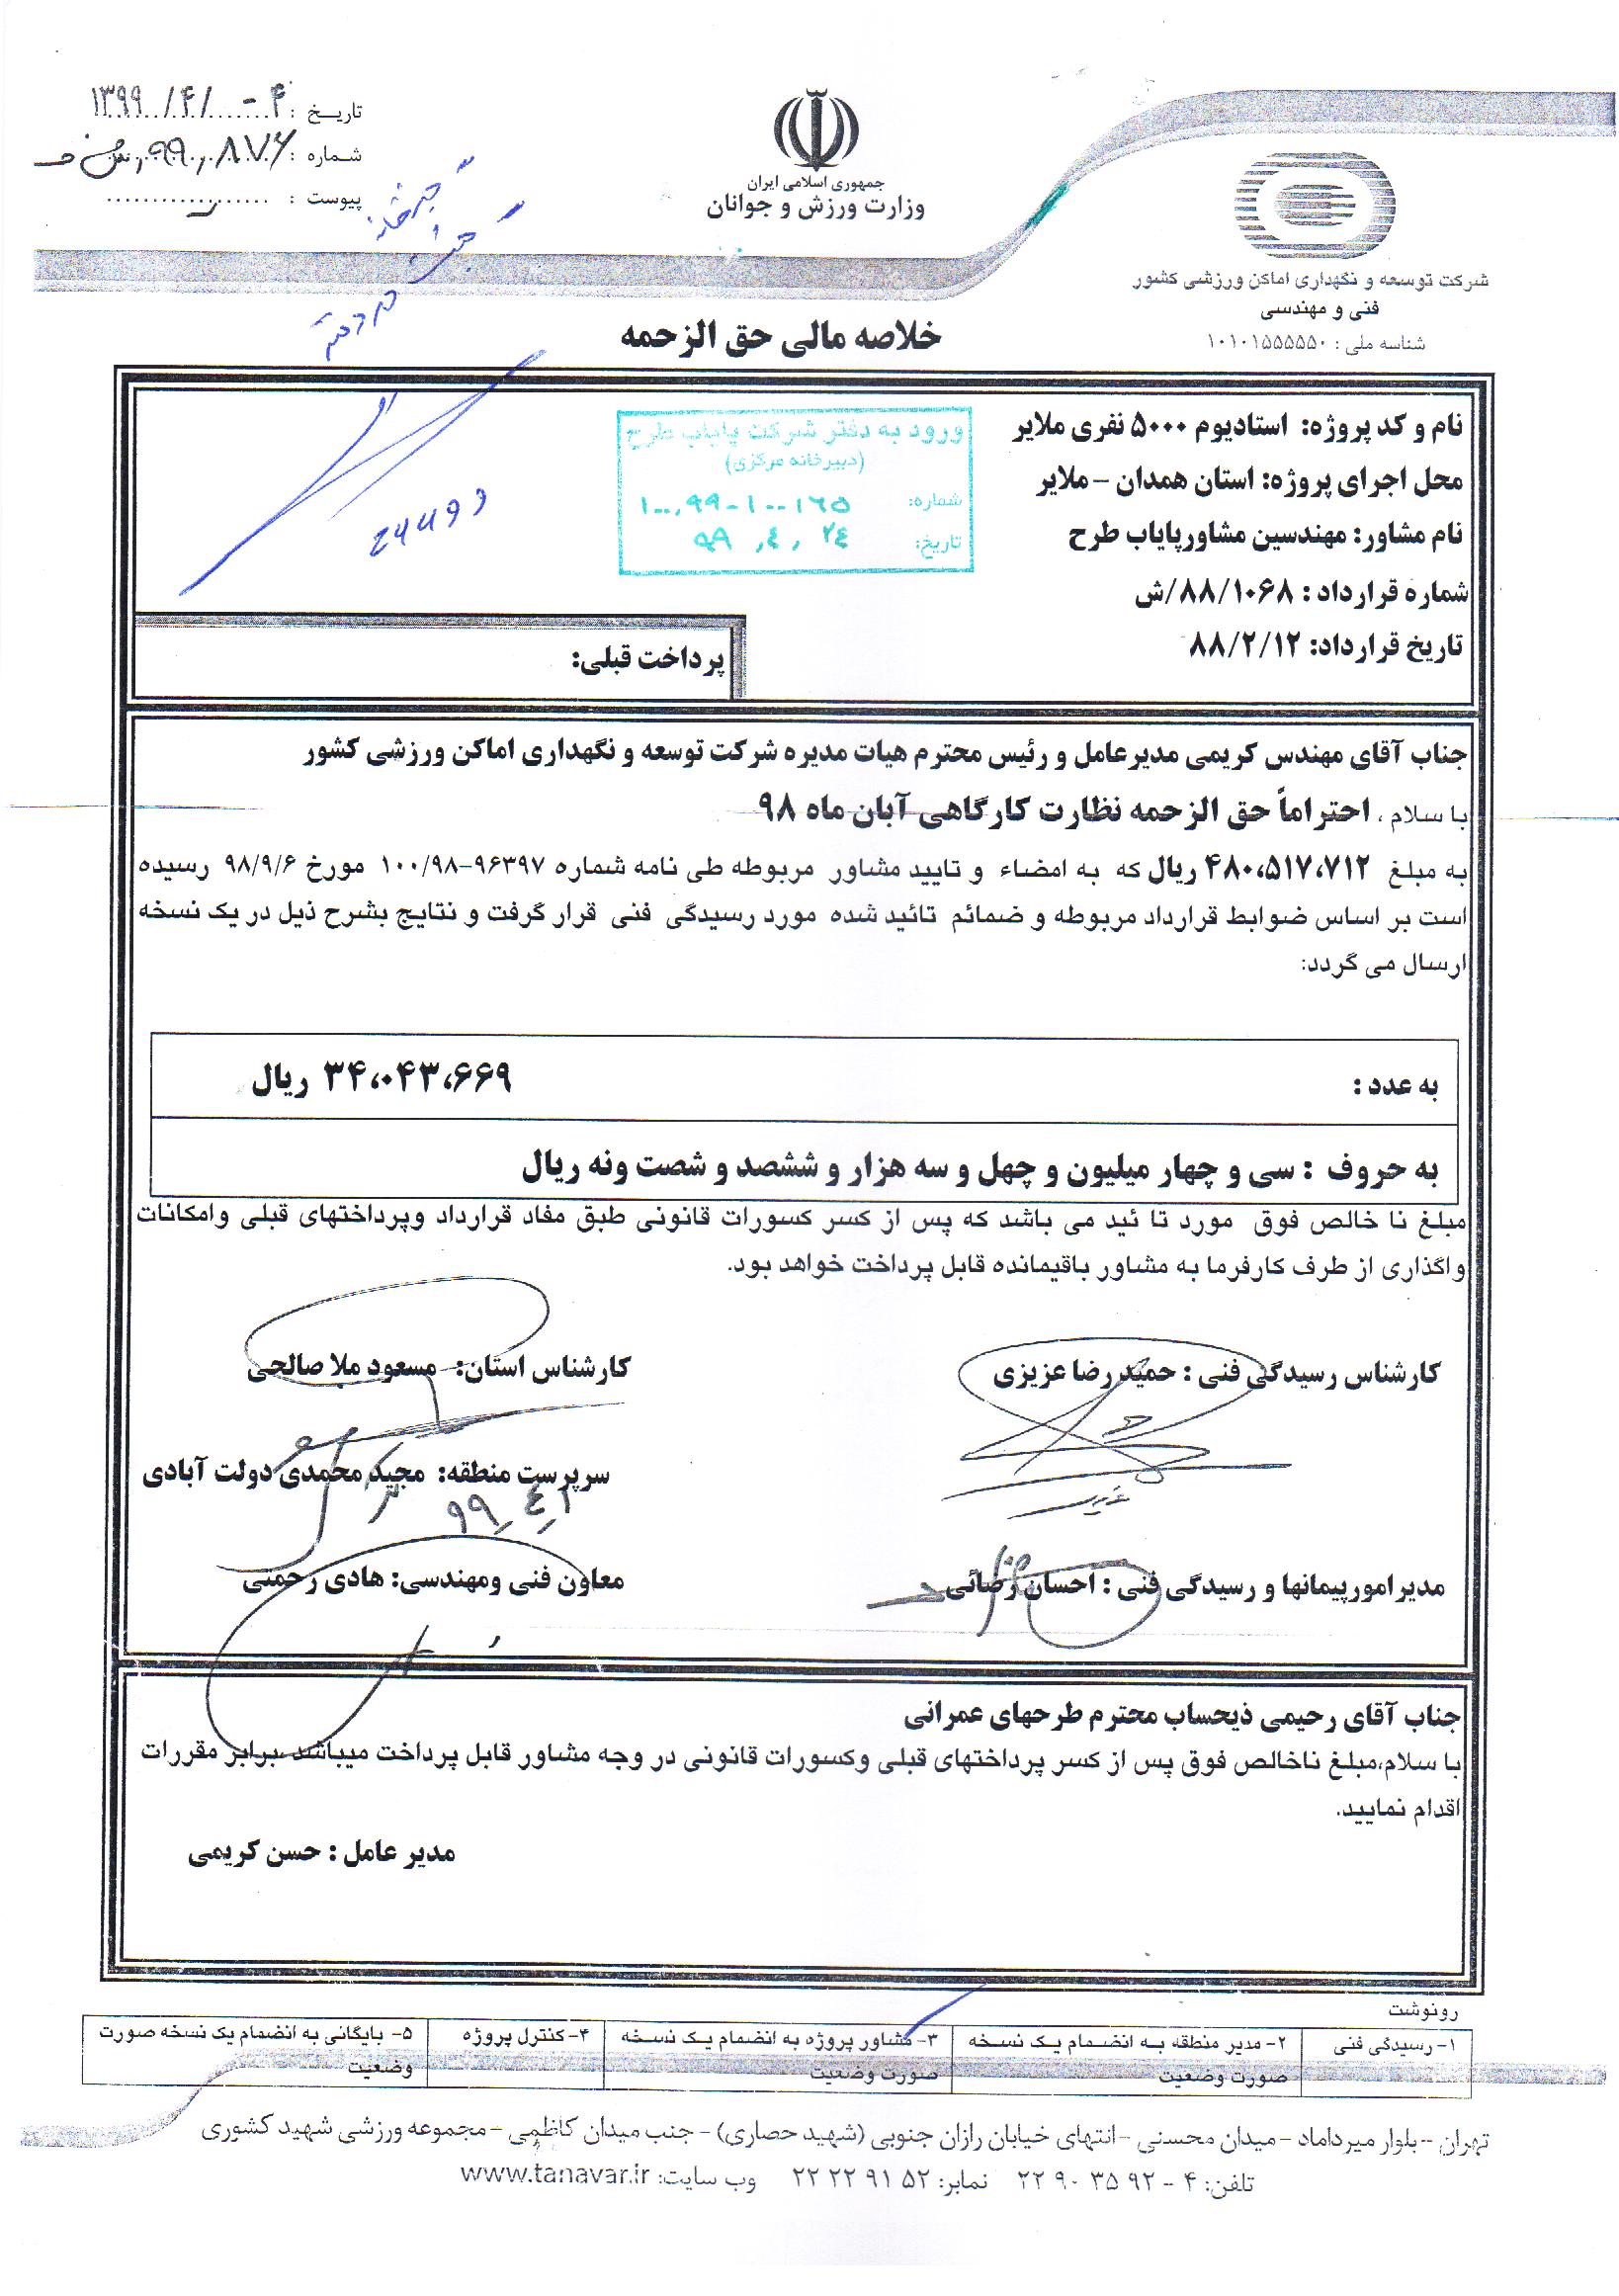 تاریخ : ۱۳۹۹/۴/۰۴
شماره : ۹۹٫۸۷۶
پیوست :
جمهوری اسلامی ایران
وزارت ورزش و جوانان
شرکت توسعه و نگهداری اماکن ورزشی کشور
فنی و مهندسی
شناسه ملی : ۱۰۱۰۱۵۵۵۵۵۰
خلاصه مالی حق الزحمه
نام و کد پروژه: استادیوم ۵۰۰۰ نفری ملایر
محل اجرای پروژه: استان همدان – ملایر
نام مشاور: مهندسین مشاورپایاب طرح
شماره قرارداد : ۸۸/۱۰۶۸/ش
تاریخ قرارداد: ۸۸/۲/۱۲
ورود به دفتر شرکت پایاب طرح
(دبیرخانه مرکزی)
شماره: ۱۰۰٫۹۹-۱۰۰۱۶۵
تاریخ: ۹۹٫۴٫۲۴
پرداخت قبلی:
جناب آقای مهندس کریمی مدیرعامل و رئیس محترم هیات مدیره شرکت توسعه و نگهداری اماکن ورزشی کشور
با سلام ، احتراماً حق الزحمه نظارت کارگاهی آبان ماه ۹۸
به مبلغ ۴۸۰،۵۱۷،۷۱۲ ریال که به امضاء و تایید مشاور مربوطه طی نامه شماره ۹۶۳۹۷-۱۰۰/۹۸ مورخ ۹۸/۹/۶ رسیده
است بر اساس ضوابط قرارداد مربوطه و ضمائم تائید شده مورد رسیدگی فنی قرار گرفت و نتایج بشرح ذیل در یک نسخه
ارسال می گردد:
به عدد : ۳۴،۰۴۳،۶۶۹ ریال
به حروف : سی و چهار میلیون و چهل و سه هزار و ششصد و شصت ونه ریال
مبلغ نا خالص فوق مورد تا ئید می باشد که پس از کسر کسورات قانونی طبق مفاد قرارداد وپرداختهای قبلی وامکانات
واگذاری از طرف کارفرما به مشاور باقیمانده قابل پرداخت خواهد بود.
کارشناس رسیدگی فنی : حمیدرضا عزیزی
کارشناس استان: مسعود ملا صالحی
سرپرست منطقه: مجید محمدی دولت آبادی
۹۹٫۴٫۱
مدیرامورپیمانها و رسیدگی فنی : احسان رضائی
معاون فنی ومهندسی: هادی رحمتی
جناب آقای رحیمی ذیحساب محترم طرحهای عمرانی
با سلام،مبلغ ناخالص فوق پس از کسر پرداختهای قبلی وکسورات قانونی در وجه مشاور قابل پرداخت میباشد برابر مقررات
اقدام نمایید.
مدیر عامل : حسن کریمی
رونوشت
۱- رسیدگی فنی
۲- مدیر منطقه به انضمام یک نسخه صورت وضعیت
۳- مشاور پروژه به انضمام یک نسخه صورت وضعیت
۴- کنترل پروژه
۵- بایگانی به انضمام یک نسخه صورت وضعیت
تهران – بلوار میرداماد – میدان محسنی – انتهای خیابان رازان جنوبی (شهید حصاری) – جنب میدان کاظمی – مجموعه ورزشی شهید کشوری
تلفن: ۴ - ۹۲ ۳۵ ۹۰ ۲۲ نمابر: ۵۲ ۹۱ ۲۲ ۲۲ وب سایت: www.tanavar.ir